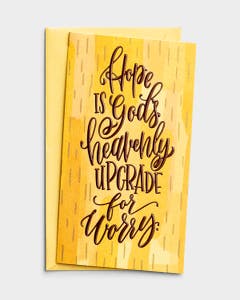 Hope
IS God's
heavenly
UPGRADE
for
Worry.